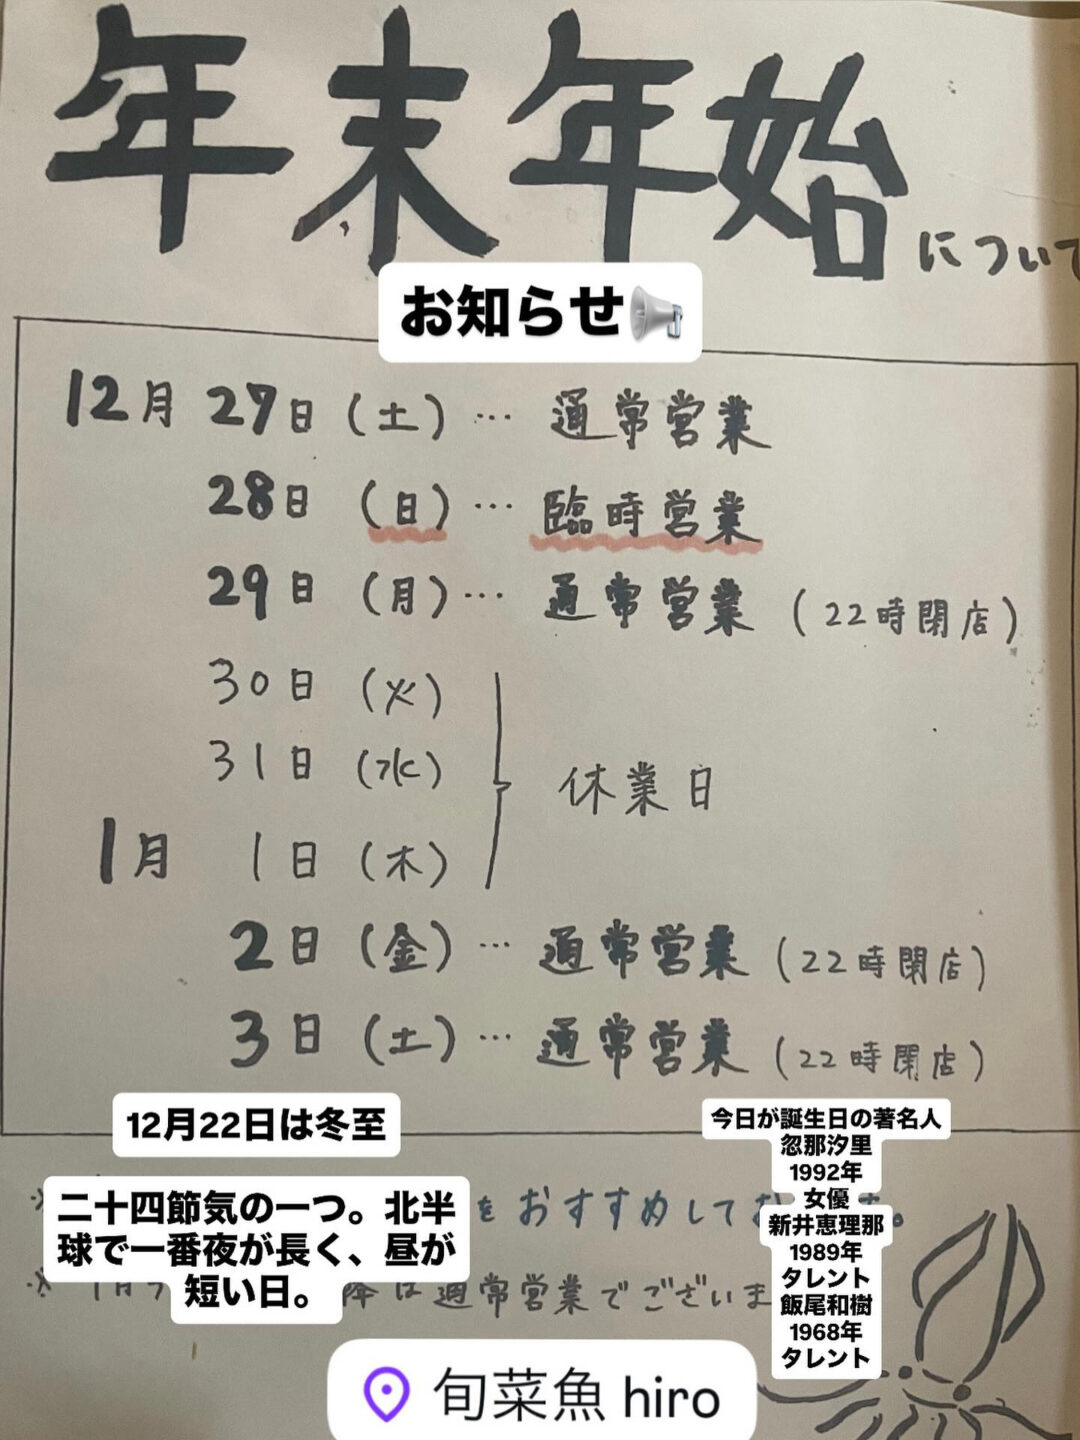 年末年始について
お知らせ📢
12月27日(土)…通常営業
28日(日)…臨時営業
29日(月)…通常営業(22時閉店)
30日(火)
31日(水)
休業日
1月1日(木)
2日(金)…通常営業(22時閉店)
3日(土)…通常営業(22時閉店)
12月22日は冬至
二十四節気の一つ。北半
球で一番夜が長く、昼が
短い日。
今日が誕生日の著名人
忽那汐里
1992年
女優
新井恵理那
1989年
タレント
飯尾和樹
1968年
タレント
※ をおすすめして
※ 1月 降は通常営業でございま
旬菜魚 hiro